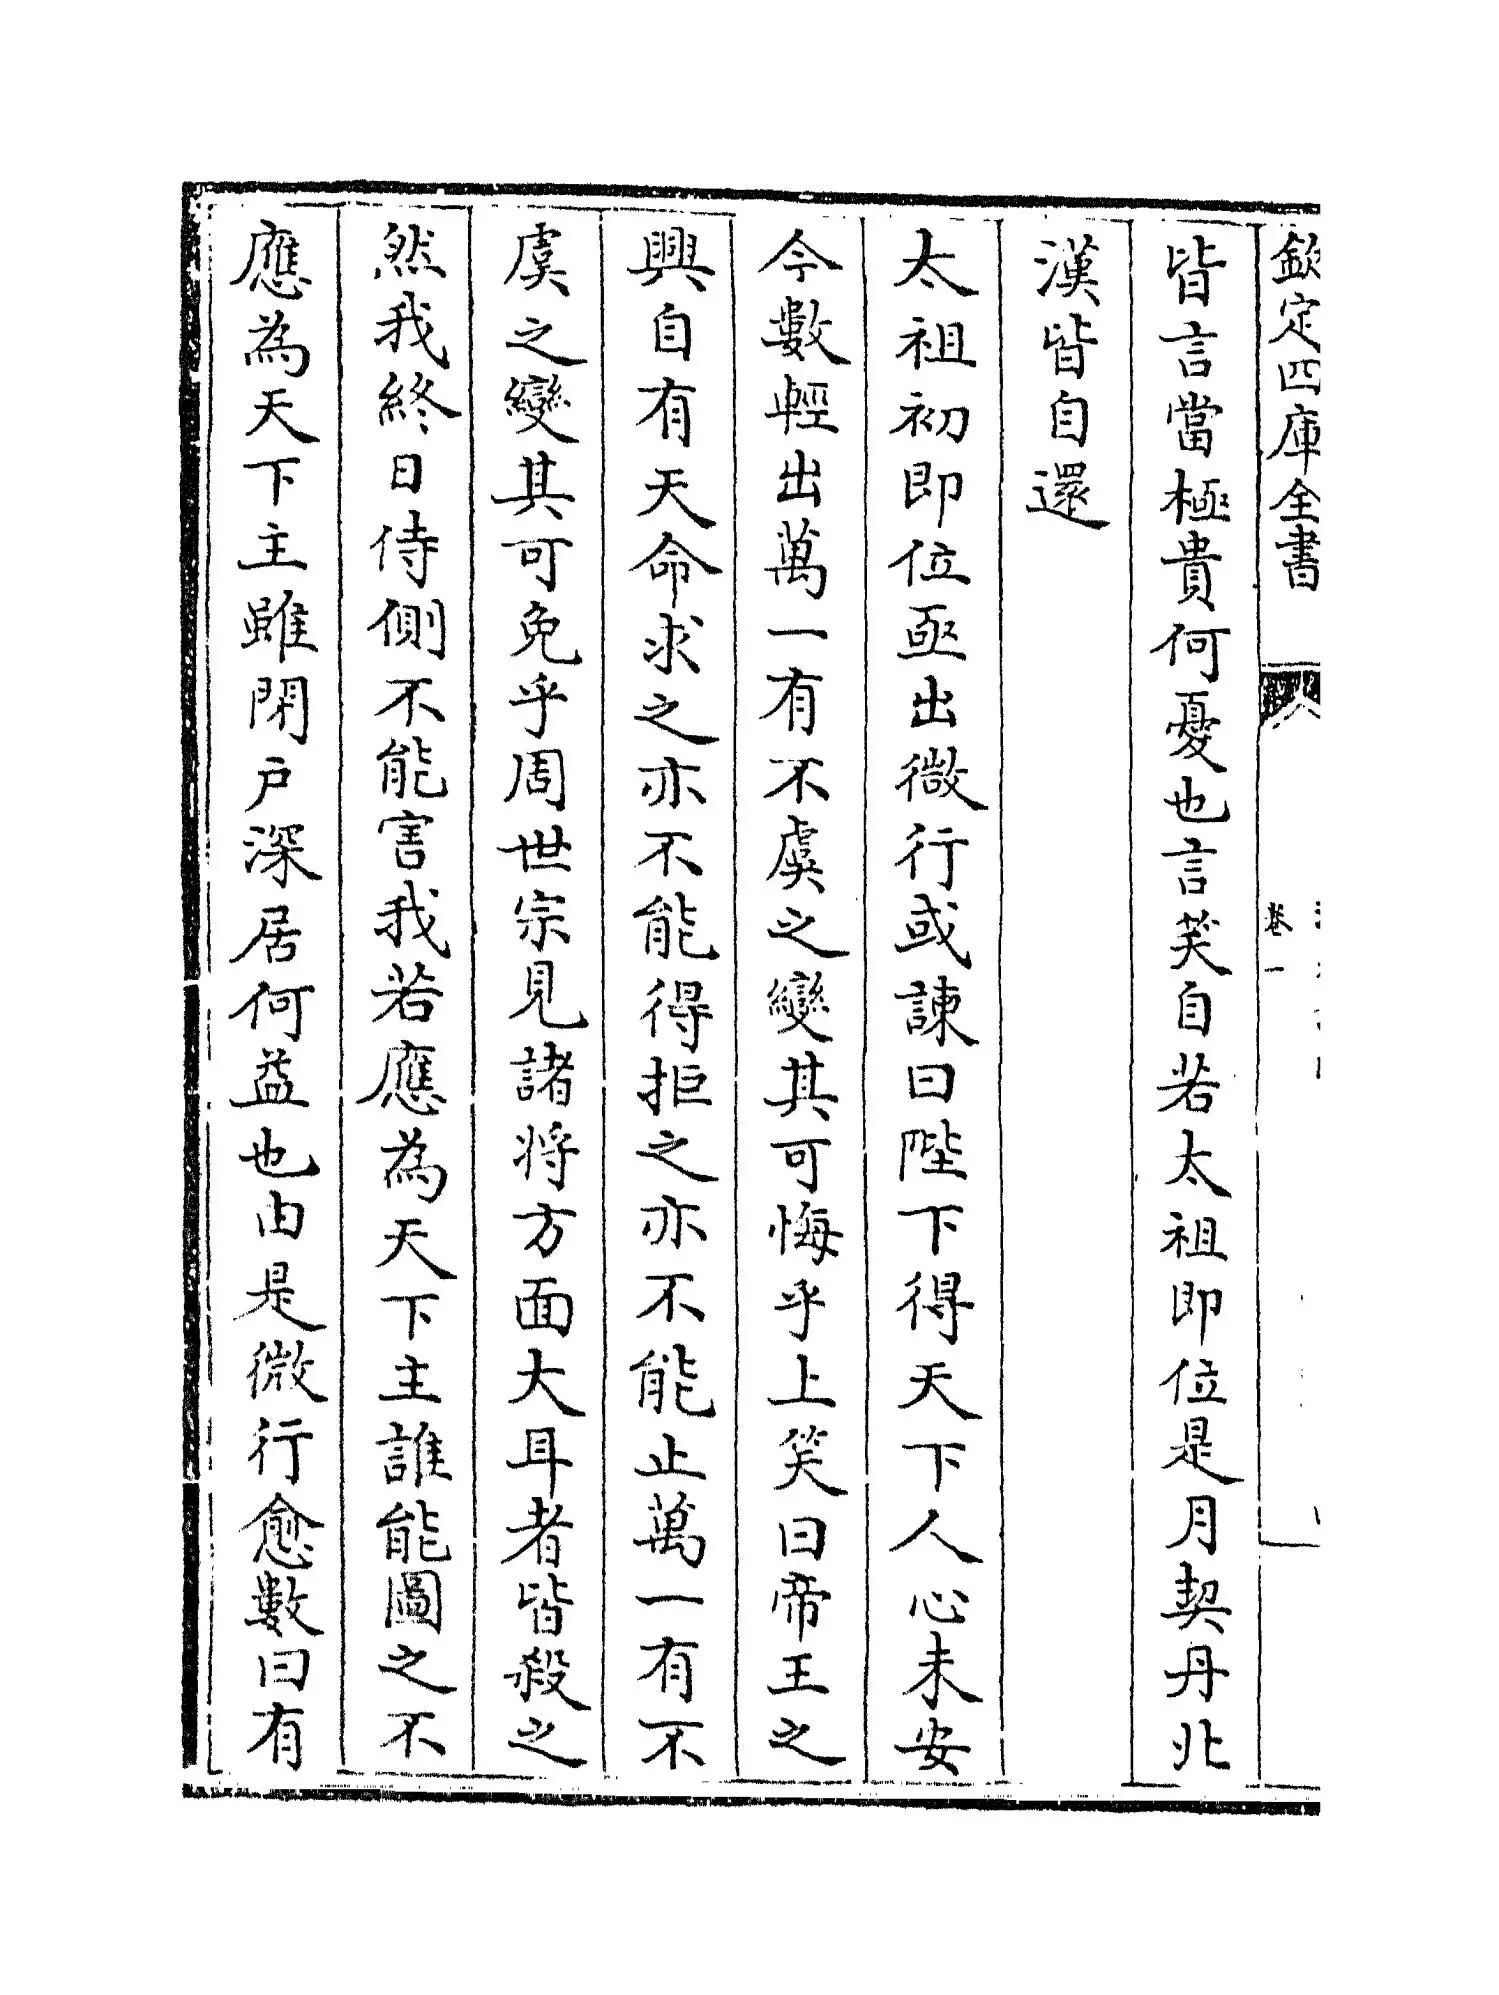 欽定四庫全書
卷一
皆言當極貴何憂也言笑自若太祖即位是月契丹北
漢皆自還
太祖初即位亟出微行或諫曰陛下得天下人心未安
今數輕出萬一有不虞之變其可悔乎上笑曰帝王之
興自有天命求之亦不能得拒之亦不能止萬一有不
虞之變其可免乎周世宗見諸將方面大耳者皆殺之
然我終日侍側不能害我若應為天下主誰能圖之不
應為天下主雖閉户深居何益也由是微行愈數曰有